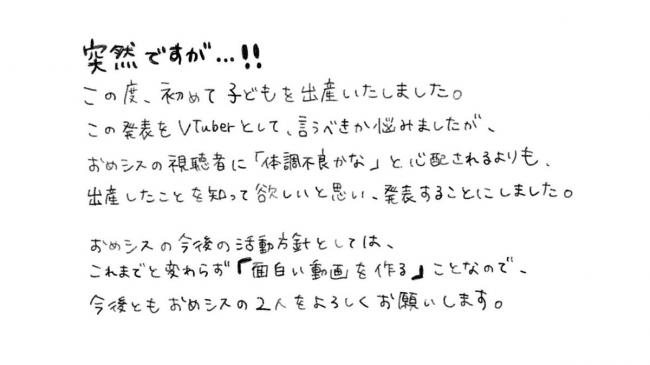 突然ですが…!!
この度、初めて子どもを出産いたしました。
この発表をVTuberとして、言うべきか悩みましたが、
おめシスの視聴者に「体調不良かな」と心配されるよりも、
出産したことを知って欲しいと思い、発表することにしました。
おめシスの今後の活動方針としては、
これまでと変わらず「面白い動画を作る」ことなので、
今後ともおめシスの2人をよろしくお願いします。